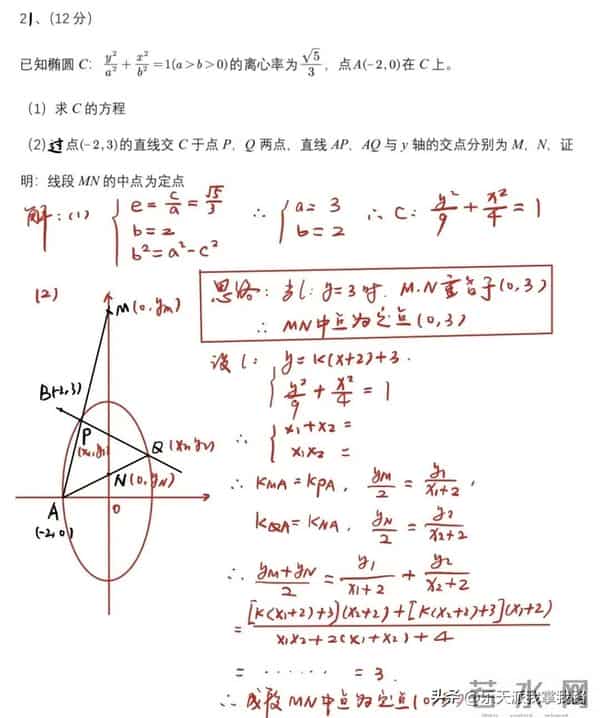 21、（12分）
已知椭圆 C： y²/a² + x²/b² =1(a＞b＞0)的离心率为 √5/3 ，点A(-2,0)在 C 上。
（1）求 C 的方程
（2）过点(-2,3)的直线交 C 于点 P，Q 两点，直线 AP，AQ 与 y 轴的交点分别为 M，N，证
明：线段 MN 的中点为定点
解：(1) { e = c/a = √5/3 b=2 b²=a²-c² ∴ { a=3 b=2 ∴ C: y²/9 + x²/4 = 1
(2)
思路：当l: y=3时，M.N重合于(0,3)
∴ MN中点为定点(0,3)
M(0,yM)
B(-2,3)
P
(x1,y1)
Q (x2,y2)
N(0,yN)
A
0
(-2,0)
设 l： y=k(x+2)+3.
{ y²/9 + x²/4 = 1
∴ { x1+x2 =
x1x2 =
∴ kMA=kPA, yM/2 = y1/(x1+2),
kQA=kNA, yN/2 = y2/(x2+2)
∴ (yM+yN)/2 = y1/(x1+2) + y2/(x2+2)
= ([k(x1+2)+3](x2+2)+[k(x2+2)+3](x1+2))/(x1x2+2(x1+x2)+4)
= ······ = 3.
∴ 线段MN中点为定点(0,3)
头条@乐天派我掌我
若水网